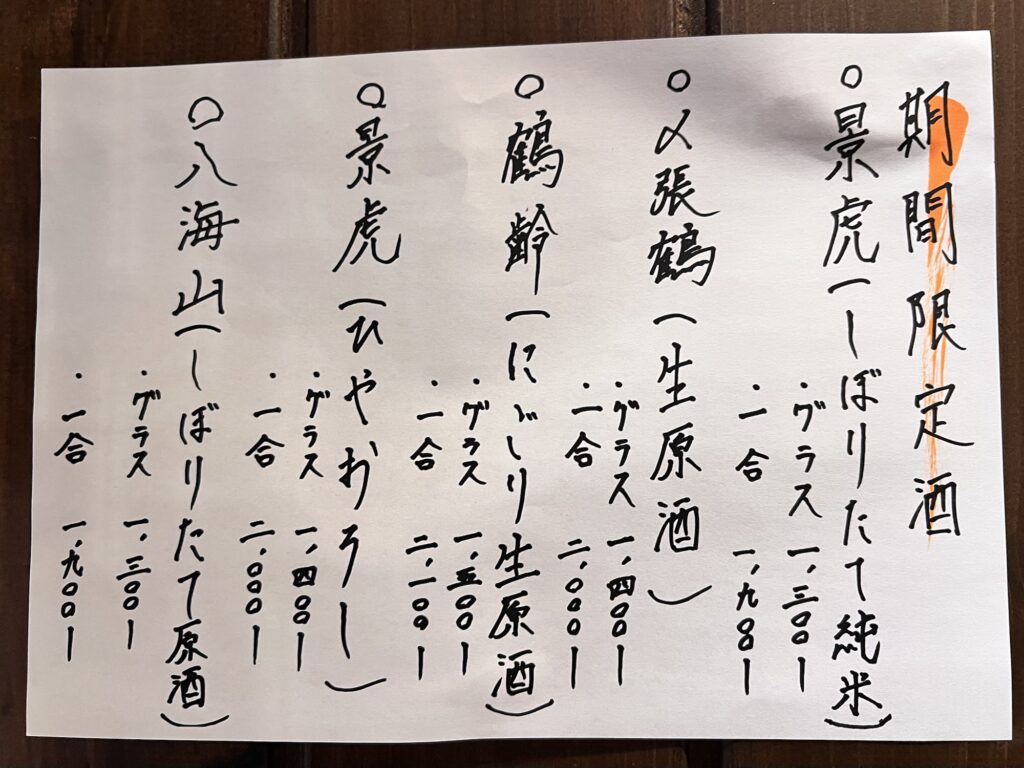 期間限定酒
○景虎(しぼりたて純米)
・グラス 一、三〇〇ー
・一合 一、九〇〇ー
○〆張鶴(生原酒)
・グラス 一、四〇〇ー
・一合 二、〇〇〇ー
○鶴齢(にごり生原酒)
・グラス 一、五〇〇ー
・一合 二、一〇〇ー
○景虎(ひやおろし)
・グラス 一、四〇〇ー
・一合 二、〇〇〇ー
○八海山(しぼりたて原酒)
・グラス 一、三〇〇ー
・一合 一、九〇〇ー